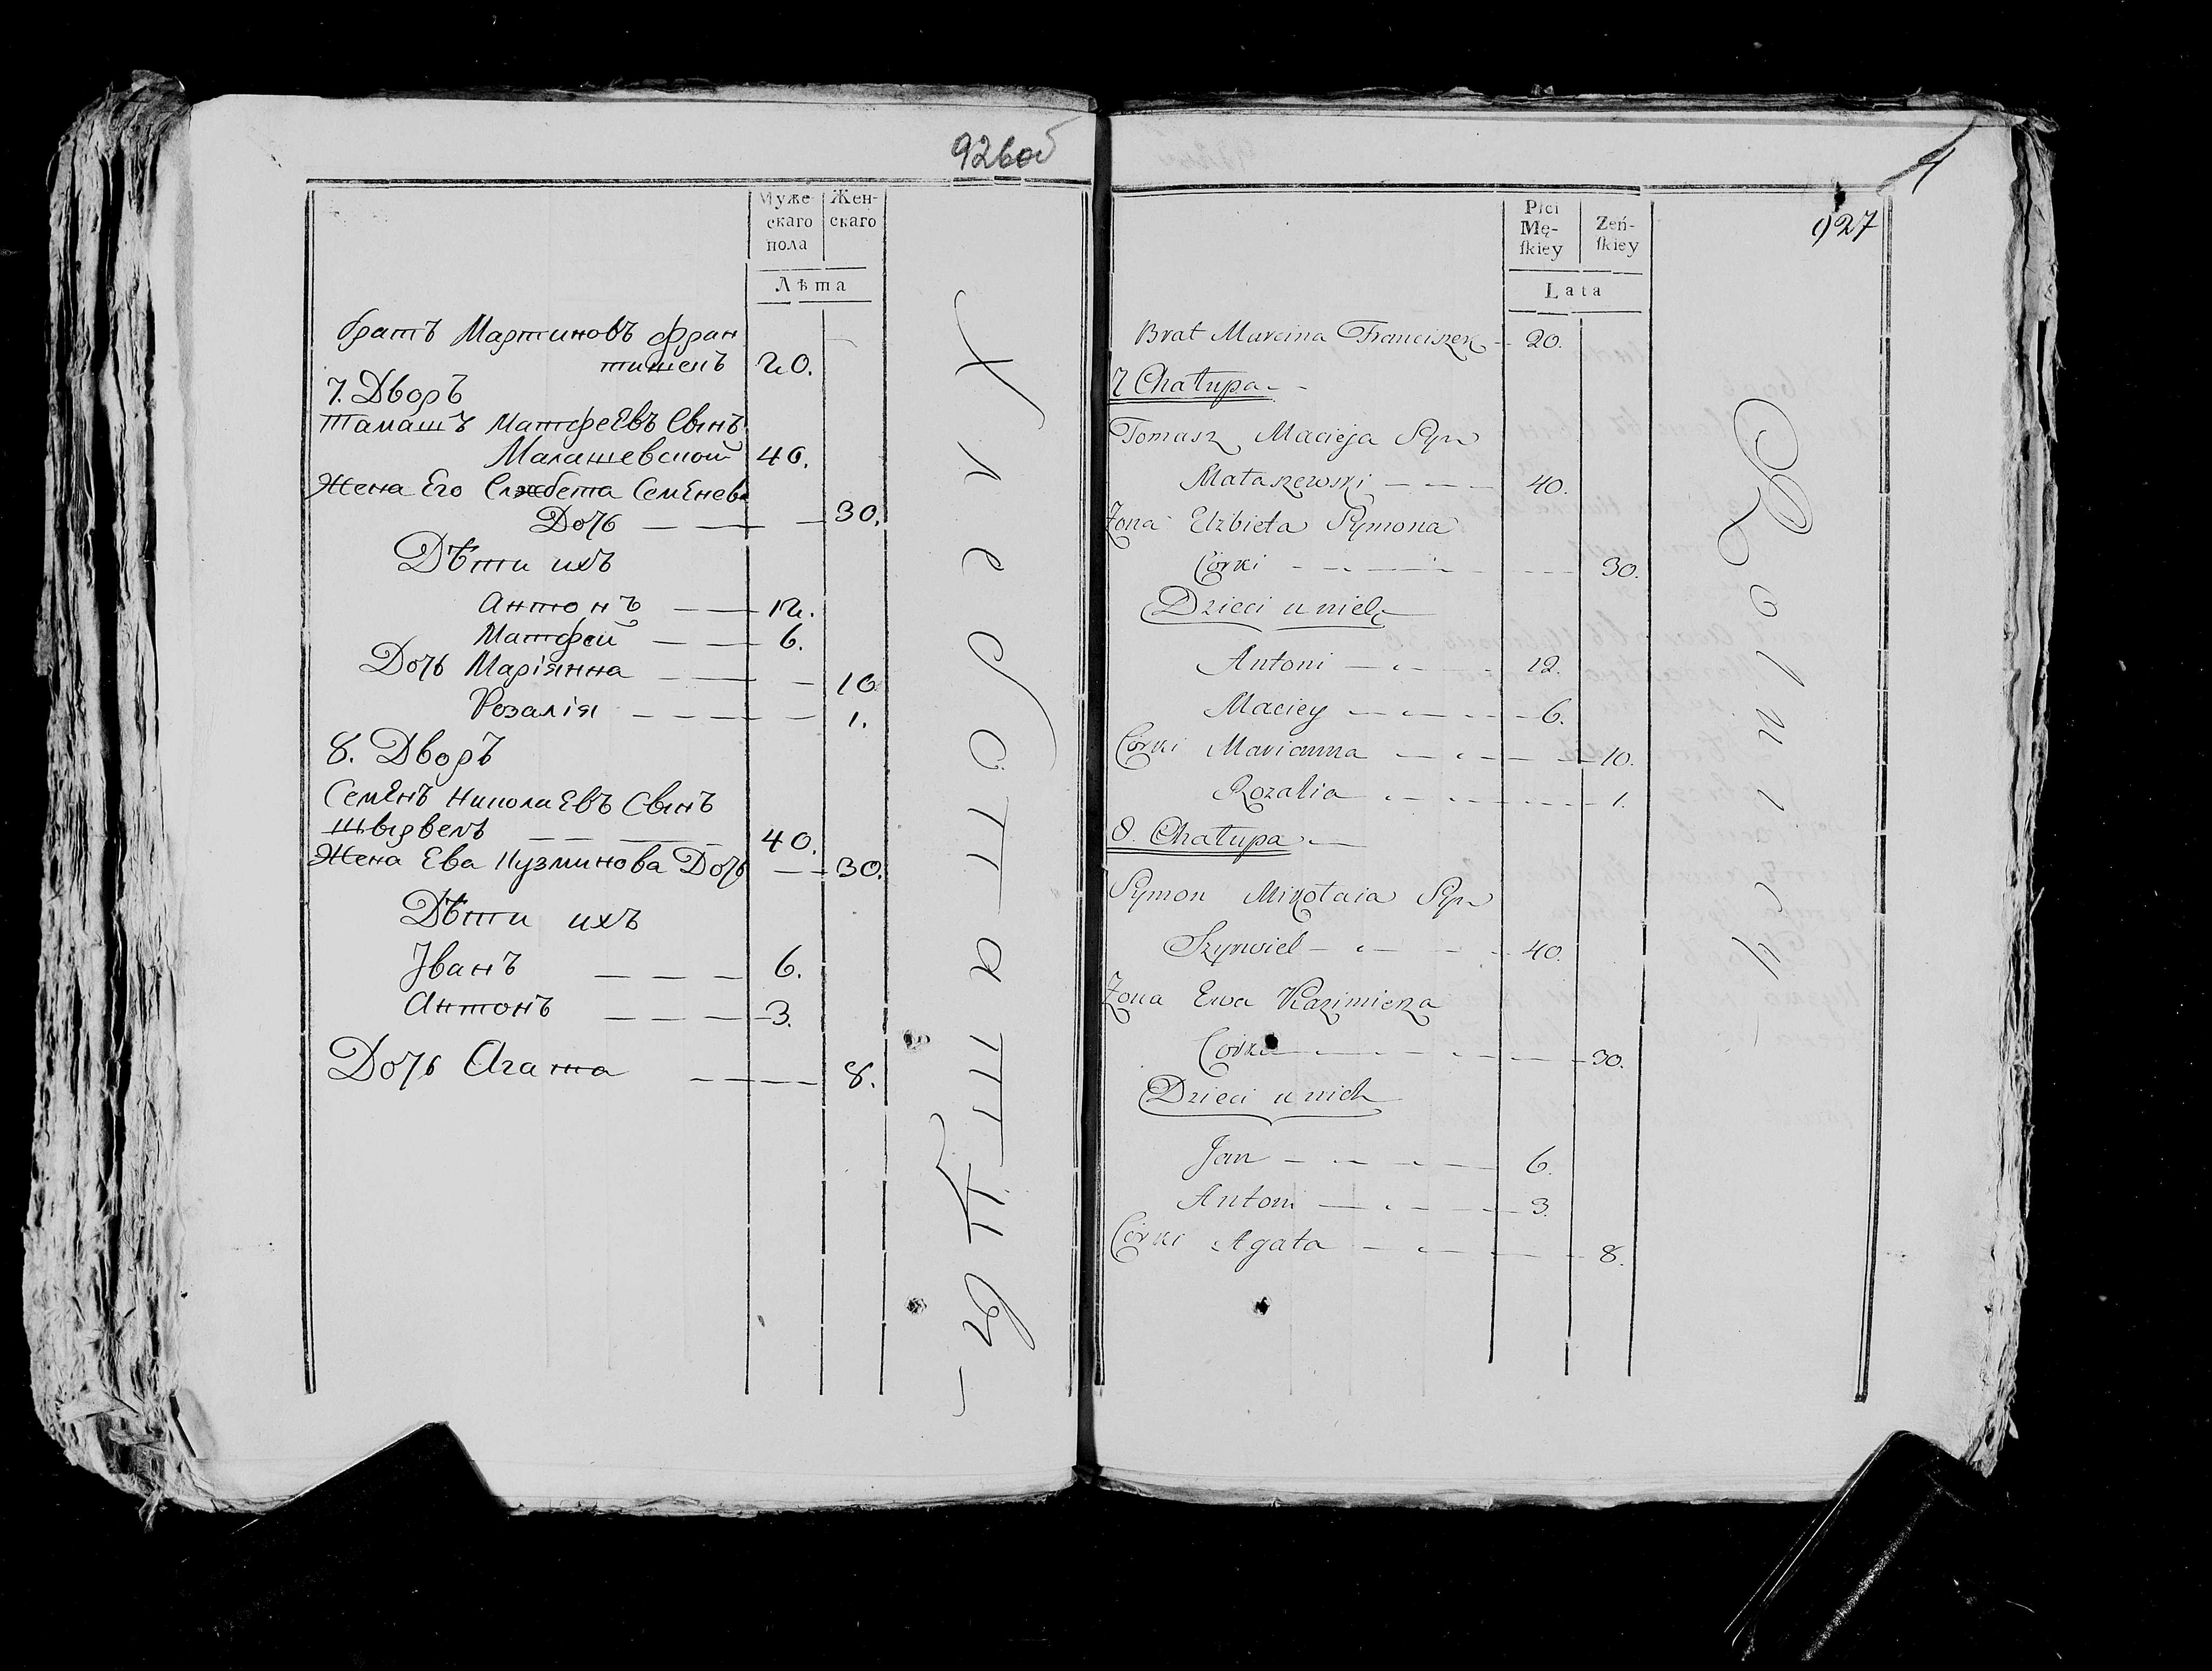 926об
Муже-
скаго
пола
Жен-
скаго
Лѣта
братъ Мартиновъ Фран
тишекъ 20.
7. Дворъ
Тамашъ Матфеевъ Сынъ
Малашевской 40.
Жена Его Елжбета Семенова
Дочь — — — 30.
Дѣти ихъ
Антонъ — — 12.
Матфей — — 6.
Дочь Маріянна — — — 10
Розалія — — — — 1.
8. Дворъ
Семенъ Николаевъ Сынъ
Шывдвель — — — 40.
Жена Ева Кузминова Дочь — — 30.
Дѣти ихъ
Іванъ — — — 6.
Антонъ — — — 3.
Дочь Агата — — — 8.
Хлебопашцы
927
Płci
Mę-
ſkiey
Zeń-
ſkiey
Lata
Brat Marcina Franciszek - 20.
7 Chałupa - -
Tomasz Macieja Syn
Małaszewski — - — 40.
Zona Elzbieta Symona
Córki - - - — - — 30.
Dzieci u nich
Antoni — - — - 12.
Maciey — - — - — 6.
Córki Marianna — - — - — 10.
Rozalia - - — - - - - 1.
8. Chałupa - —
Symon Mikołaia Syn
Szyrwiel — - — - 40.
Zona Ewa Kazimierza
Córka — - — - — - 30.
Dzieci u nich
Jan — - — - — 6.
Antoni — - — - — 3.
Córki Agata — - — - — 8.
Rolnicy